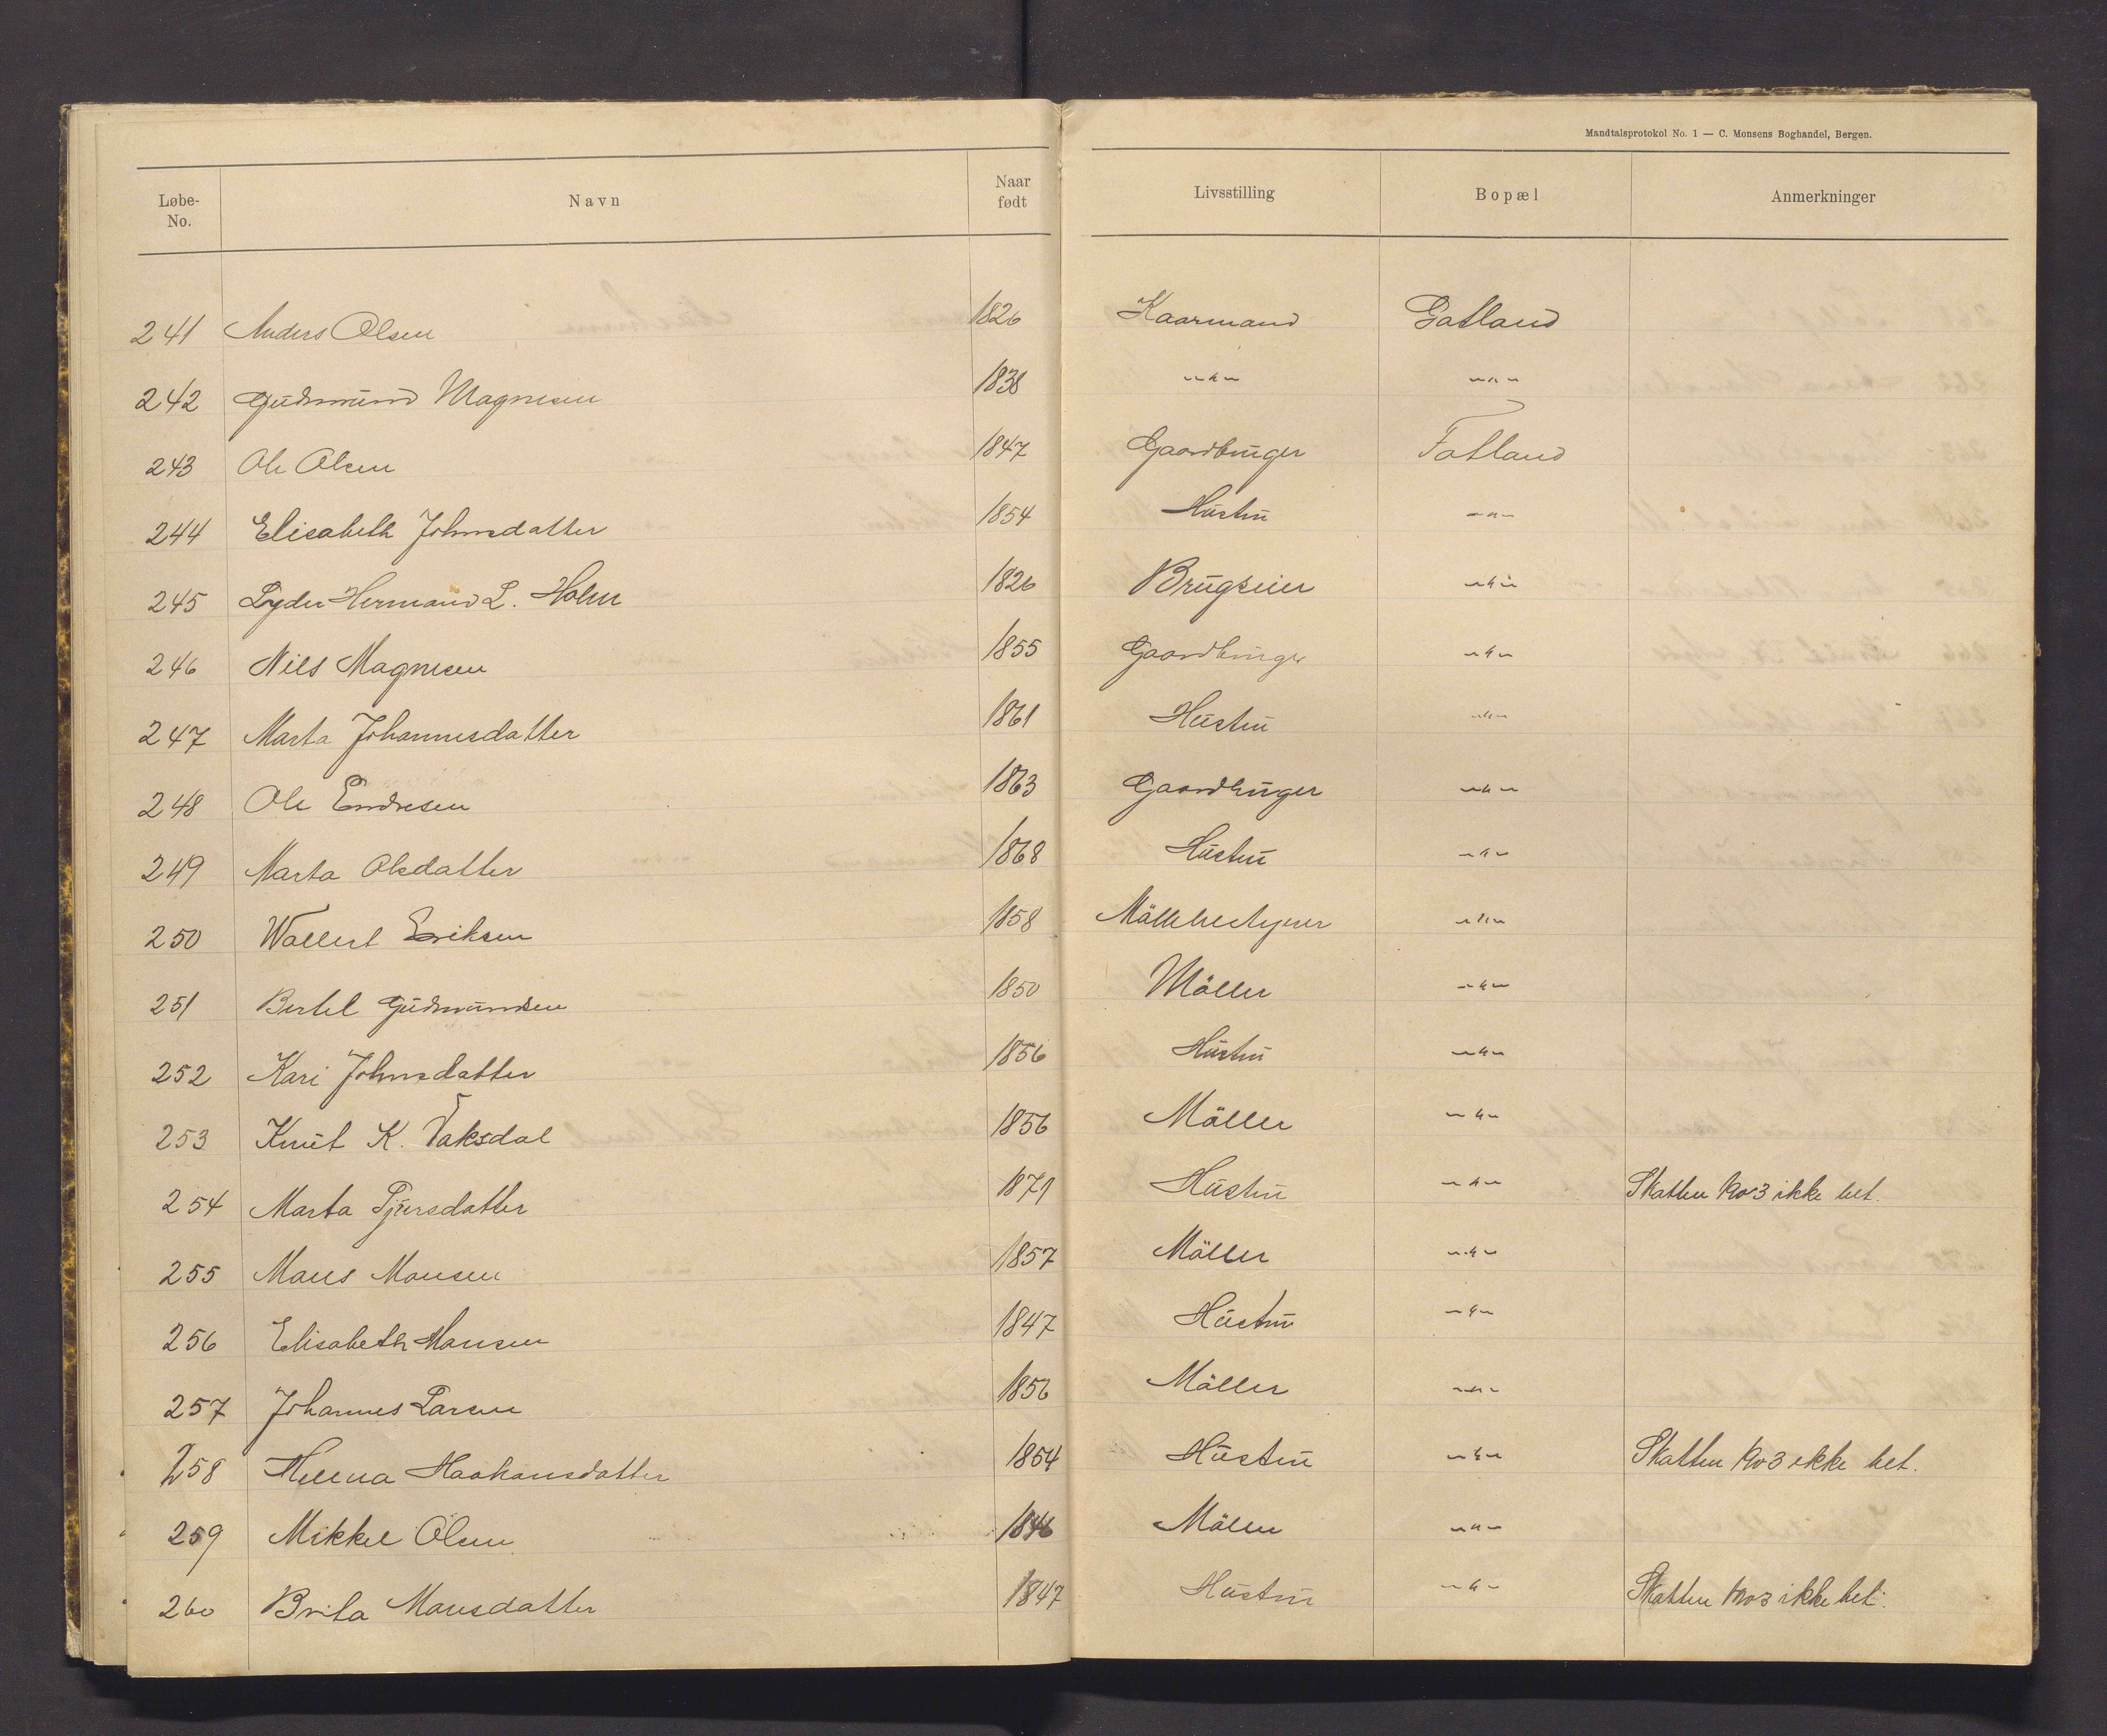 Mandtalsprotokol No. 1 — C. Monsens Boghandel, Bergen.
Løbe-No. Navn Naar født Livsstilling Bopæl Anmerkninger
241 Anders Olsen 1826 Kaarmand Gatland
242 Gudmund Magnesen 1838 -"- -"-
243 Ole Olsen 1847 Gaardbruger Fatland
244 Elisabeth Johnsdatter 1854 Hustru -"-
245 Lyder Hermand L. Holm 1826 Brugseier -"-
246 Nils Magnesen 1855 Gaardbruger -"-
247 Marta Johannesdatter 1861 Hustru -"-
248 Ole Endresen 1863 Gaardbruger -"-
249 Marta Olsdatter 1868 Hustru -"-
250 Wallert Eriksen 1858 Möllebestyrer -"-
251 Bertel Gudmundsen 1850 Möller -"-
252 Kari Johnsdatter 1856 Hustru -"-
253 Knut K. Vaksdal 1856 Möller -"-
254 Marta Sjursdatter 1871 Hustru -"- Skatten 1903 ikke bet.
255 Mons Monsen 1857 Möller -"-
256 Elisabeth Monsen 1847 Hustru -"-
257 Johannes Larsen 1856 Möller -"-
258 Helena Haakonsdatter 1854 Hustru -"- Skatten 1903 ikke bet.
259 Mikkel Olsen 1846 Möller -"-
260 Brita Monsdatter 1847 Hustru -"- Skatten 1903 ikke bet.